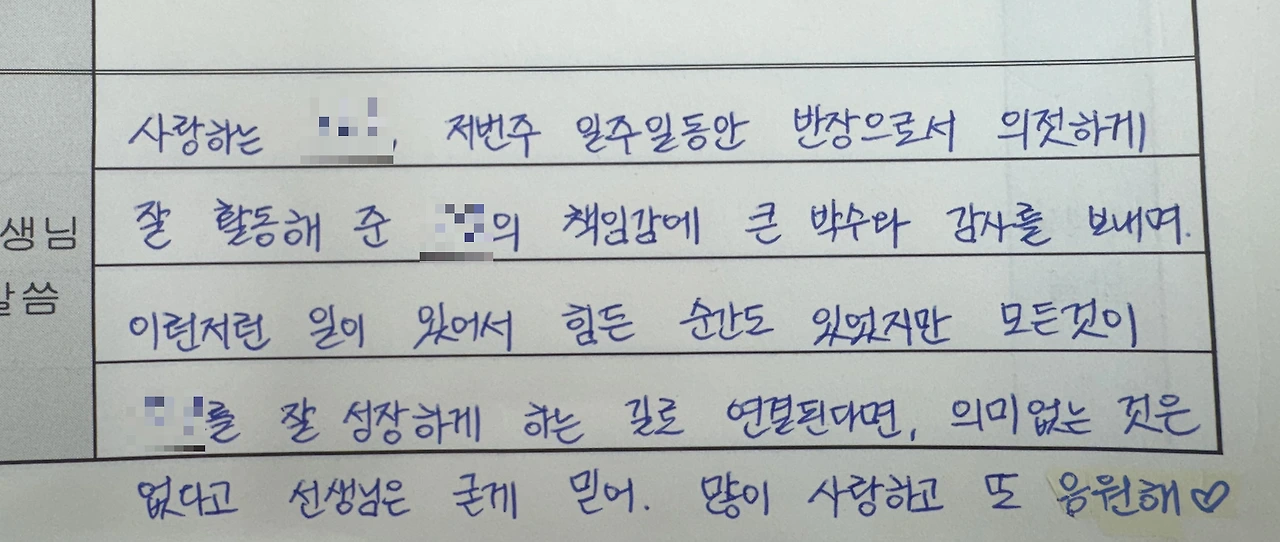 사랑하는 , 저번주 일주일동안 반장으로서 의젓하게
생님 잘 활동해 준 의 책임감에 큰 박수와 감사를 보내며.
말씀
이런저런 일이 있어서 힘든 순간도 있었지만 모든것이
를 잘 성장하게 하는 길로 연결된다면, 의미없는 것은
없다고 선생님은 굳게 믿어. 많이 사랑하고 또 응원해♡